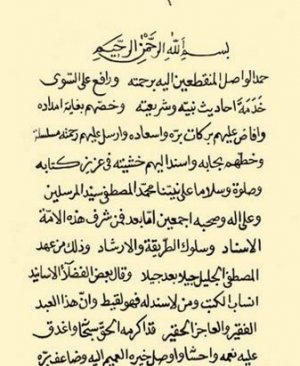 ١
بسم الله الرحمن الرحيم
حمدا لواصل المنقطعين اليه برحمته ورافع على السوى
خدمة احاديث نبيه وشريعته وخصهم بغاية امداده
وافاض عليهم بركات بره واسعاده وارسل عليهم رحمته مسلسلة
وحطهم بجابه واسند اليهم خشيته في عزيز كتابه
وصلوة وسلاما على نبينا محمد المصطفى سيد المرسلين
وعلى اله وصحبه اجمعين اما بعد فمن شرف هذه الامة
الاسناد وسلوك الطريقة والارشاد وذلك من عهد
المصطفى الجليل جيلا بعد جيلا وقال بعض الفضلاء الاسانيد
انساب الكتب ومن لا سند له فهو لقيط وان هذا العبد
الفقير والعاجز الحقير قد اكرمه الحق سبحانه واغدق
عليه نعمه واحسانا واوصل خيره العميم اليه وضاعف بره